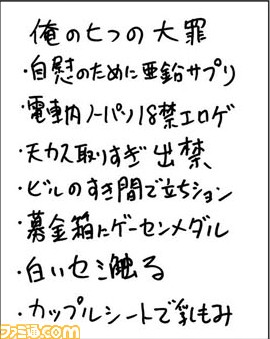 俺の七つの大罪
・自慰のために亜鉛サプリ
・電車内ノーパソ18禁エロゲ
・天カス取りすぎ出禁
・ビルのすき間で立ちション
・募金箱にゲーセンメダル
・白いセミ触る
・カップルシートで乳もみ
ファミ通.com